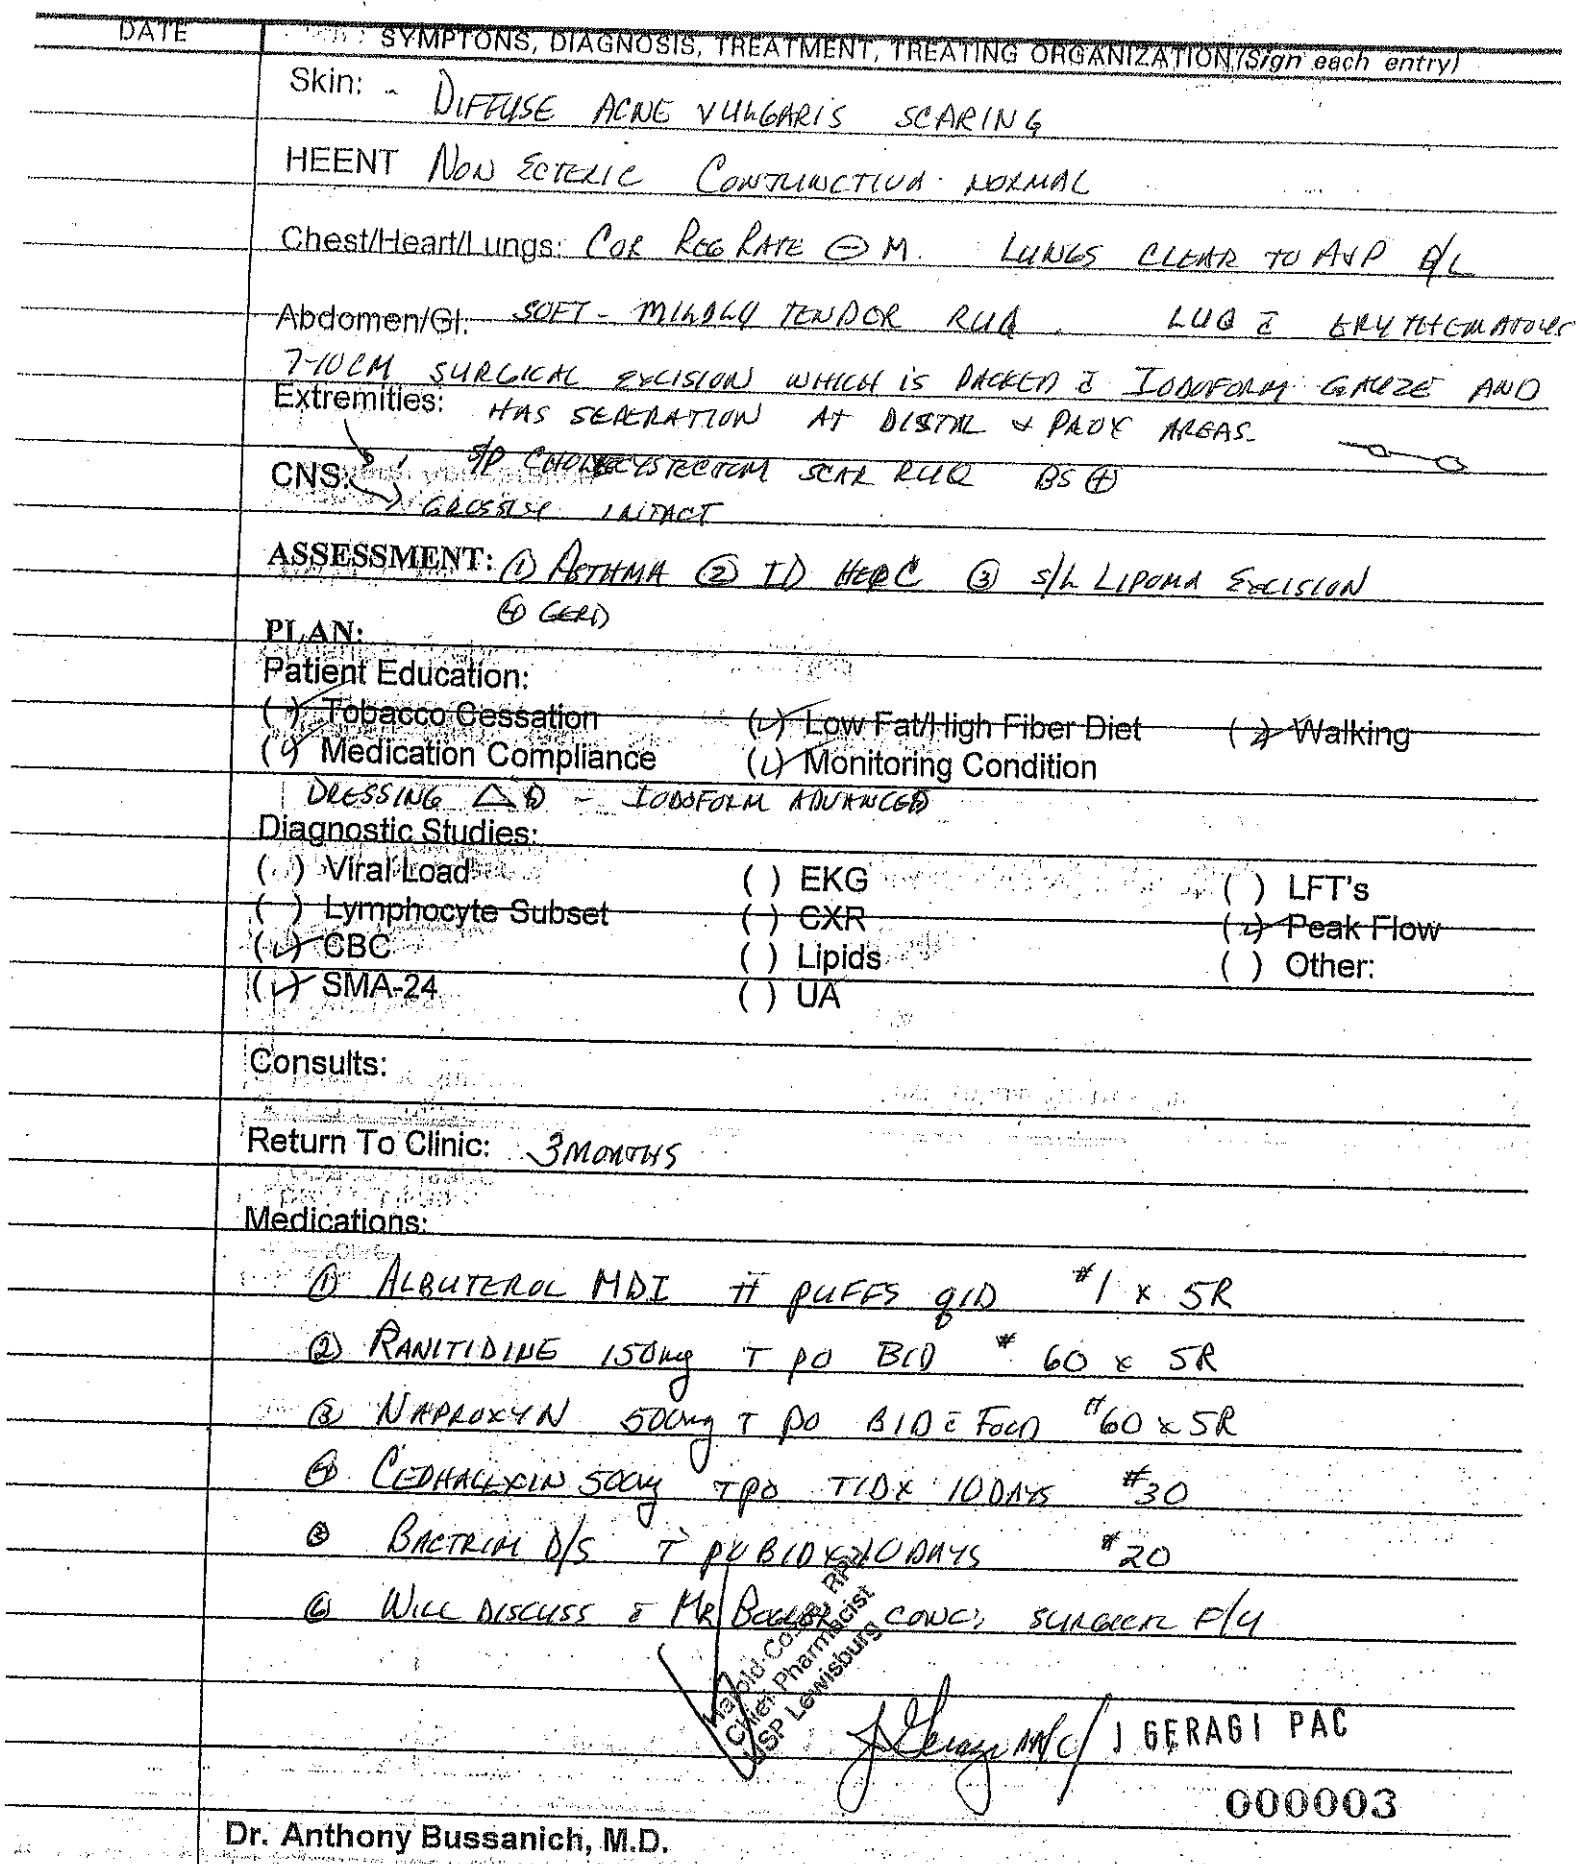 DATE SYMPTONS, DIAGNOSIS, TREATMENT, TREATING ORGANIZATION (Sign each entry)
Skin: - DIFFUSE ACNE VULGARIS SCARING
HEENT NON ECTERIC CONJUNCTIVA NORMAL
Chest/Heart/Lungs: COR REG RATE ⊖ M. LUNGS CLEAR TO A+P B/L
Abdomen/GI: SOFT - MILDLY TENDOR RUQ. LUQ c̄ ERYTHEMATOUS
7-10CM SURGICAL EXCISION WHICH IS PACKED c̄ IODOFORM GAUZE AND
Extremities: HAS SEPERATION AT DISTAL & PROX AREAS.
S/P CHOLECYSTECTOM SCAR RUQ BS ⊕
CNS: GROSSLY INTACT
ASSESSMENT: ① ASTHMA ② ID HEP C ③ S/L LIPOMA EXCISION
④ GERD
PLAN:
Patient Education:
(✓) Tobacco Cessation (✓) Low Fat/High Fiber Diet (✓) Walking
(✓) Medication Compliance (✓) Monitoring Condition
DRESSING Δ'D - IODOFORM ADVANCED
Diagnostic Studies:
( ) Viral Load ( ) EKG ( ) LFT's
( ) Lymphocyte Subset ( ) CXR (✓) Peak Flow
(✓) CBC ( ) Lipids ( ) Other:
(✓) SMA-24 ( ) UA
Consults:
Return To Clinic: 3 MONTHS
Medications:
① ALBUTEROL MDI ii PUFFS QID #1 x 5R
② RANITIDINE 150mg T PO BID #60 x 5R
③ NAPROXYN 500mg T PO BID c̄ FOOD #60 x 5R
④ CEPHALEXIN 500mg T PO TID x 10 DAYS #30
⑤ BACTRIM D/S T PO BID x 10 DAYS #20
⑥ WILL DISCUSS c̄ MR CONC: SURGICAL F/U
Harold Cozza, RPh
Chief Pharmacist
USP Lewisburg
J Geragi PAC / J GERAGI PAC
000003
Dr. Anthony Bussanich, M.D.